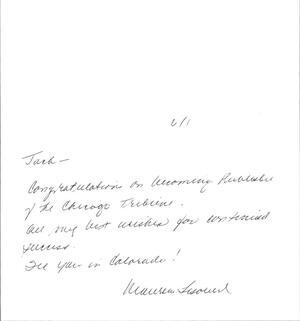 6/1
Jack —
Congratulations on becoming Publisher
of the Chicago Tribune.
All my best wishes for continued
success.
See you in Colorado!
Maureen